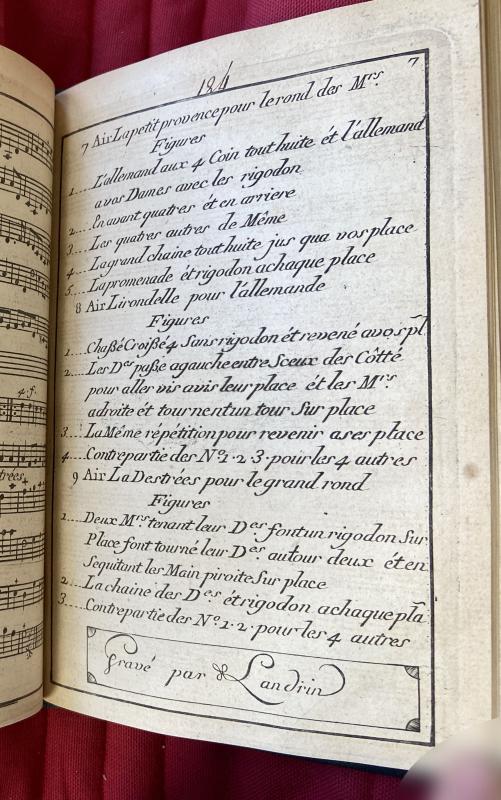 184
7
7 Air La petit provence pour le rond des Mrs.
Figures
1.... L'allemand aux 4 Coin tout huite ét l'allemand
a vos Dames avec les rigodon
2.... En avant quatres ét en arriere
3.... Les quatres autres de Même
4.... La grand chaine tout huite jus qua vos place
5.... La promenade ét rigodon achaque place
8 Air Lirondelle pour l'allemande
Figures
1.... Chaßé Croißé 4 Sans rigodon ét revené avos pl
2.... Les Des paße agauche entre Sceux des Côtté
pour aller vis avis leur place ét les Mrs.
adroite ét tournent un tour Sur place
3... La Même répétition pour revenir a ses place
4... Contrepartie des No. 1 · 2 · 3 · pour les 4 autres
9 Air La Destrées pour le grand rond
Figures
1.... Deux Mrs. tenant leur Des font un rigodon Sur
Place font tourné leur Des. autour deux ét en
Sequitant les Main piroite Sur place
2... La chaine des Des ét rigodon achaque pla
3... Contrepartie des No. 1 · 2 · pour les 4 autres
Gravé par Landrin
4. f.
trées